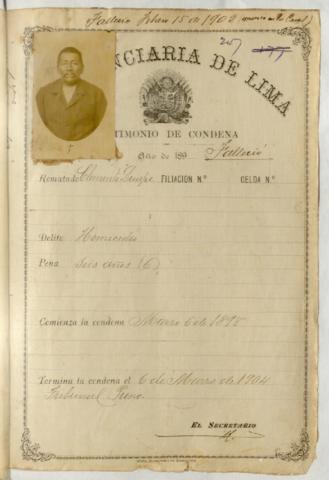 Falleció Febrero 15 de 1902
207
PENITENCIARIA DE LIMA
TESTIMONIO DE CONDENA
Año de 189 Falleció
Rematado Clemente FILIACION N.º CELDA N.º
Delito Homicidio
Pena Seis años (6)
Comienza la condena Marzo 6 de 1898
Termina la condena el 6 de Marzo de 1904
Tribunal
EL SECRETARIO